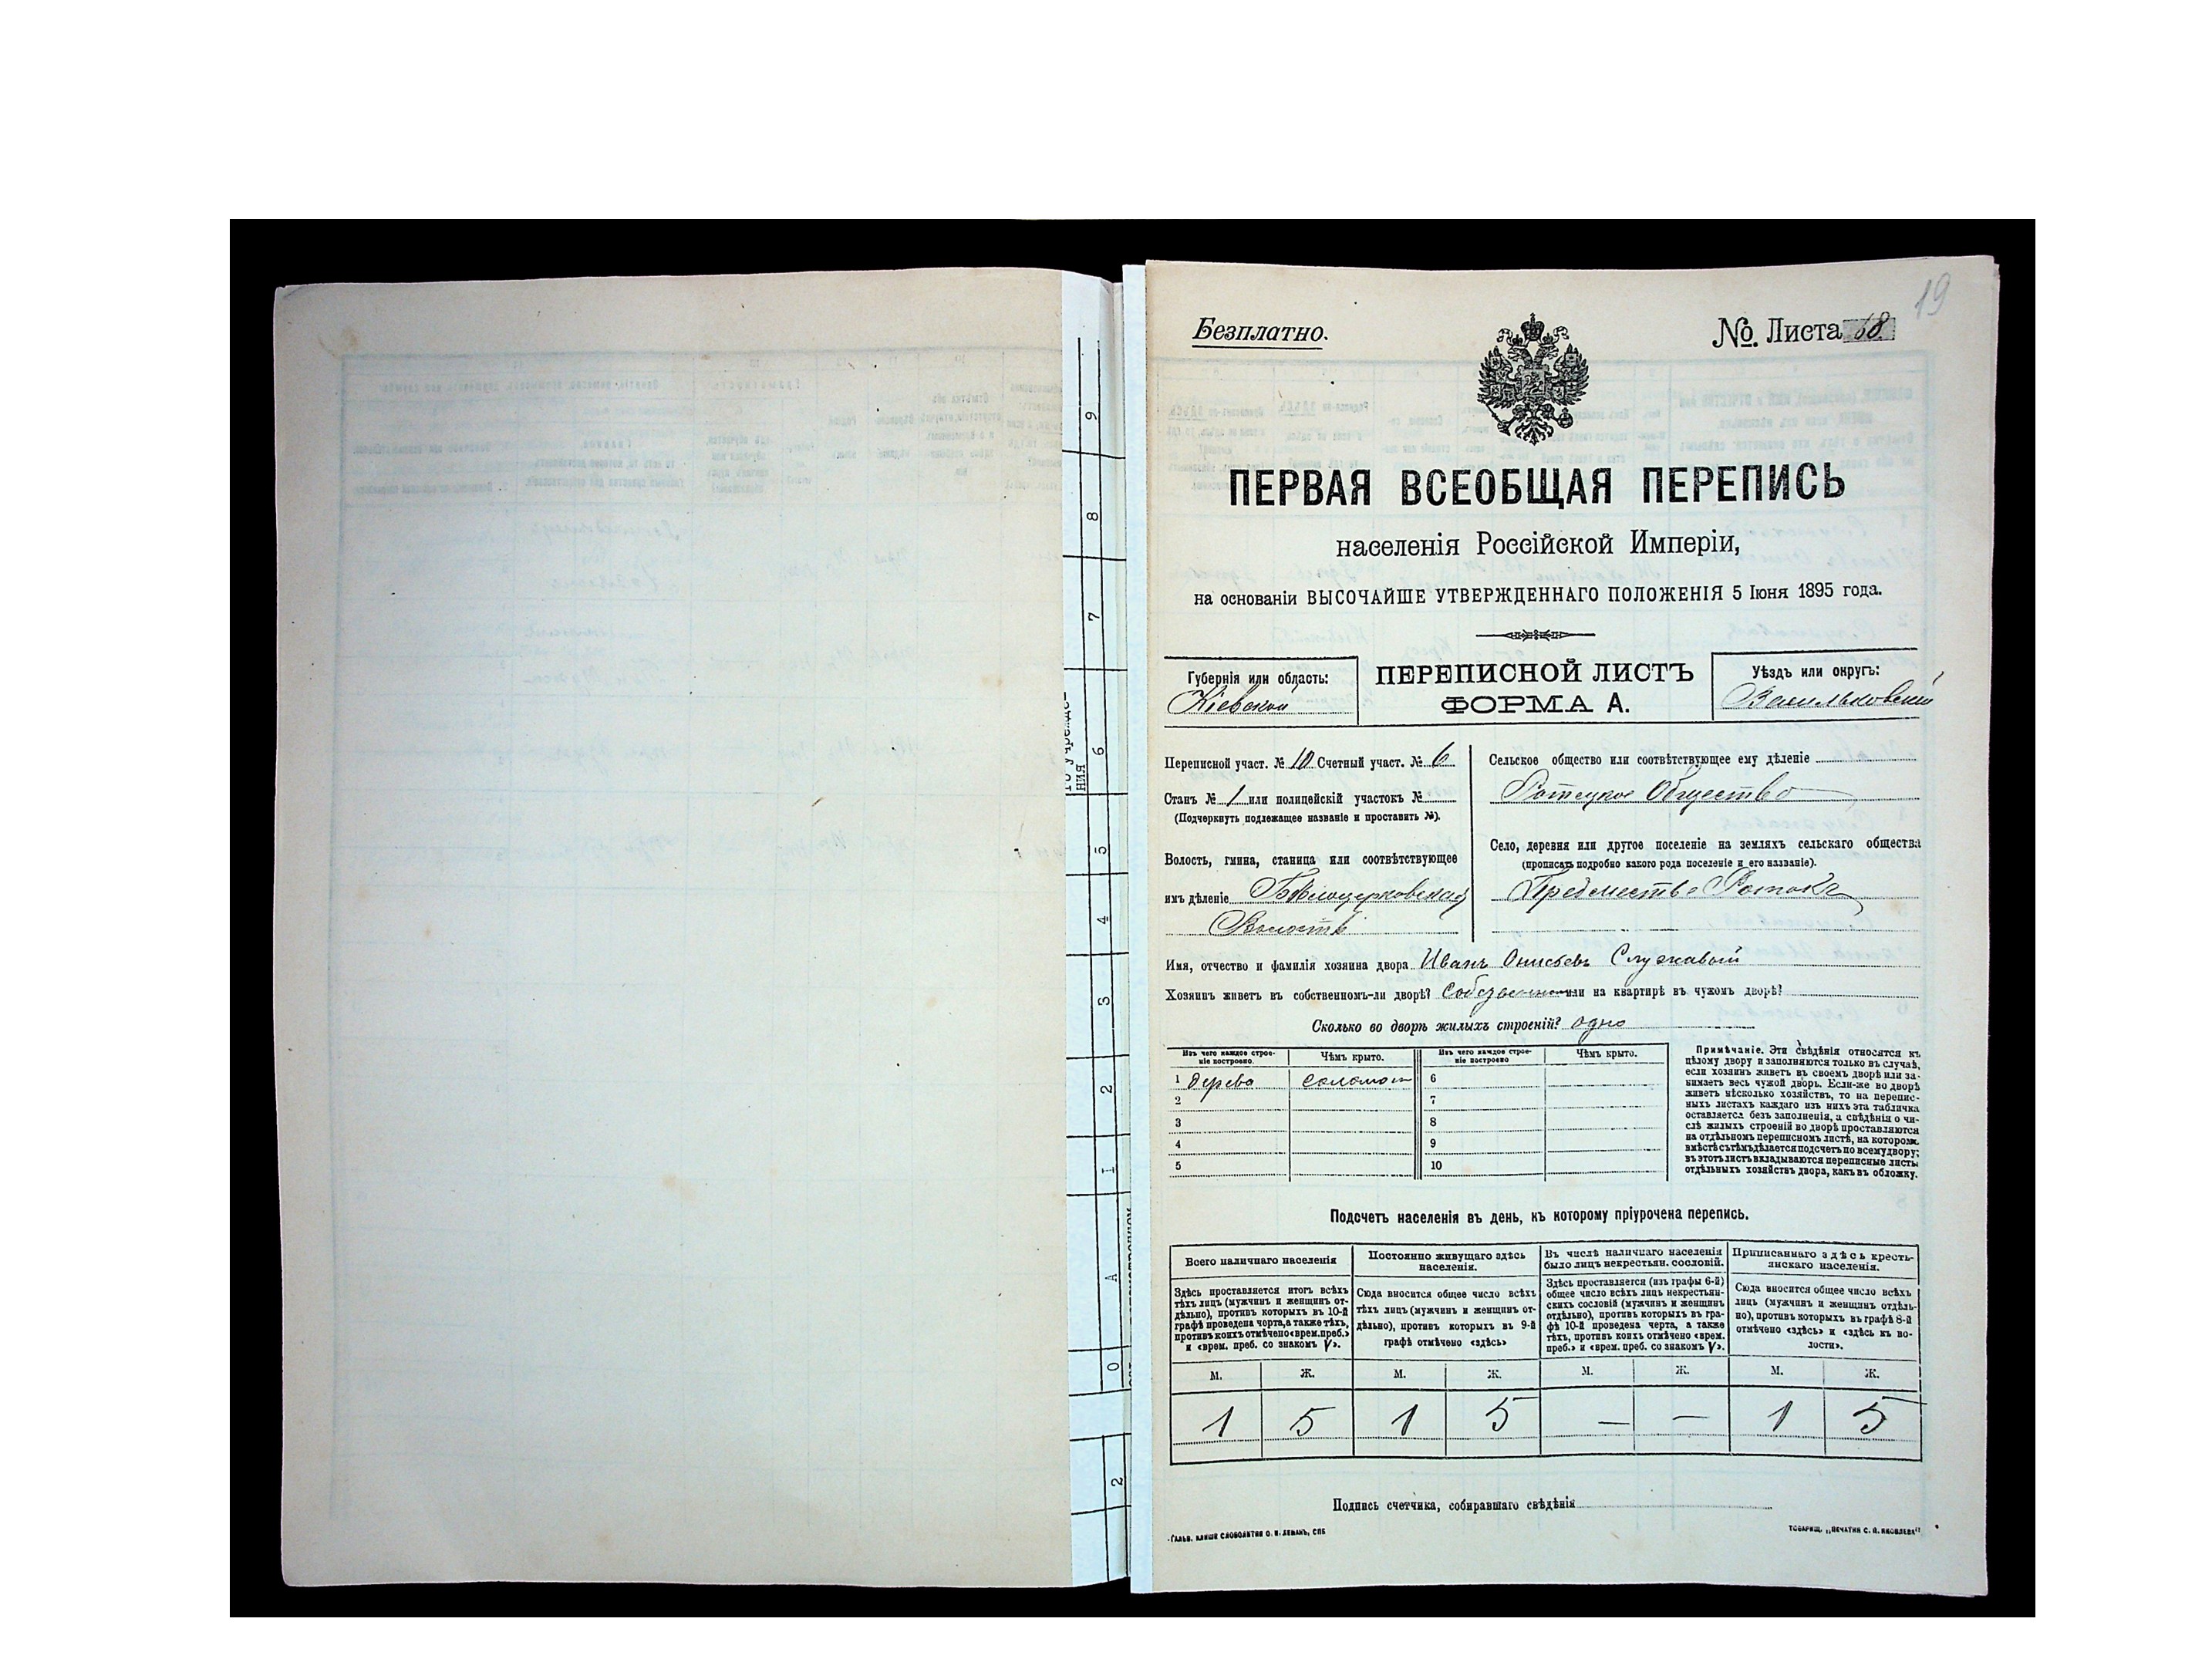 19
Безплатно.
№ Листа 68.
ПЕРВАЯ ВСЕОБЩАЯ ПЕРЕПИСЬ
населенія Россійской Имперіи,
на основаніи ВЫСОЧАЙШЕ УТВЕРЖДЕННАГО ПОЛОЖЕНІЯ 5 Іюня 1895 года.
Губернія или область:
Кіевской
ПЕРЕПИСНОЙ ЛИСТЪ
ФОРМА А.
Уѣздъ или округъ:
Васильковскій
Переписной участ. № 10 Счетный участ. № 6
Станъ № 1 или полицейскій участокъ №
(Подчеркнуть подлежащее названіе и проставить №).
Волость, гмина, станица или соотвѣтствующее
имъ дѣленіе Бѣлоцерковская
Волость
Сельское общество или соотвѣтствующее ему дѣленіе
Ротецкое Общество
Село, деревня или другое поселеніе на земляхъ сельскаго общества
(прописать подробно какого рода поселеніе и его названіе).
Предместье Роток
Имя, отчество и фамилія хозяина двора Иванъ Онисьевъ Служавый
Хозяинъ живетъ въ собственномъ-ли дворѣ? или на квартирѣ въ чужомъ дворѣ?
Сколько во дворѣ жилыхъ строеній? одно
Изъ чего каждое строеніе построено.
Чѣмъ крыто.
Изъ чего каждое строеніе построено
Чѣмъ крыто.
1 дерева соломой 6
2 7
3 8
4 9
5 10
Примѣчаніе. Эти свѣдѣнія относятся къ
цѣлому двору и заполняются только въ случаѣ,
если хозяинъ живетъ въ своемъ дворѣ или за-
нимаетъ весь чужой дворъ. Если-же во дворѣ
живетъ нѣсколько хозяйствъ, то на перепис-
ныхъ листахъ каждаго изъ нихъ эта табличка
оставляется безъ заполненія, а свѣдѣнія о чи-
слѣ жилыхъ строеній во дворѣ проставляются
на отдѣльномъ переписномъ листѣ, на которомъ
вмѣстѣ съ тѣмъ дѣлается подсчетъ по всему двору;
въ этотъ листъ вкладываются переписные листы
отдѣльныхъ хозяйствъ двора, какъ въ обложку.
Подсчетъ населенія въ день, къ которому пріурочена перепись.
Всего наличнаго населенія
Здѣсь проставляется итогъ всѣхъ
тѣхъ лицъ (мужчинъ и женщинъ от-
дѣльно), противъ которыхъ въ 10-й
графѣ проведена черта, а также тѣхъ,
противъ коихъ отмѣчено «врем. преб.»
и «врем. преб. со знакомъ V».
Постоянно живущаго здѣсь
населенія.
Сюда вносится общее число всѣхъ
тѣхъ лицъ (мужчинъ и женщинъ от-
дѣльно), противъ которыхъ въ 9-й
графѣ отмѣчено «здѣсь»
Въ числѣ наличнаго населенія
было лицъ некрестьян. сословій.
Здѣсь проставляется (изъ графы 6-й)
общее число всѣхъ лицъ некрестьян-
скихъ сословій (мужчинъ и женщинъ
отдѣльно), противъ которыхъ въ гра-
фѣ 10-й проведена черта, а также
тѣхъ, противъ коихъ отмѣчено «врем.
преб.» и «врем. преб. со знакомъ V».
Приписаннаго здѣсь кресть-
янскаго населенія.
Сюда вносится общее число всѣхъ
лицъ (мужчинъ и женщинъ отдѣль-
но), противъ которыхъ въ графѣ 8-й
отмѣчено «здѣсь» и «здѣсь къ во-
лости».
М. Ж. М. Ж. М. Ж. М. Ж.
1 5 1 5 — — 1 5
Подпись счетчика, собиравшаго свѣдѣнія
Гальв. клише словолитни О. И. Леманъ, СПБ
Товарищ. „Печатня С. П. Яковлева“
9
8
7
6
5
4
3
2
1
А
0
2